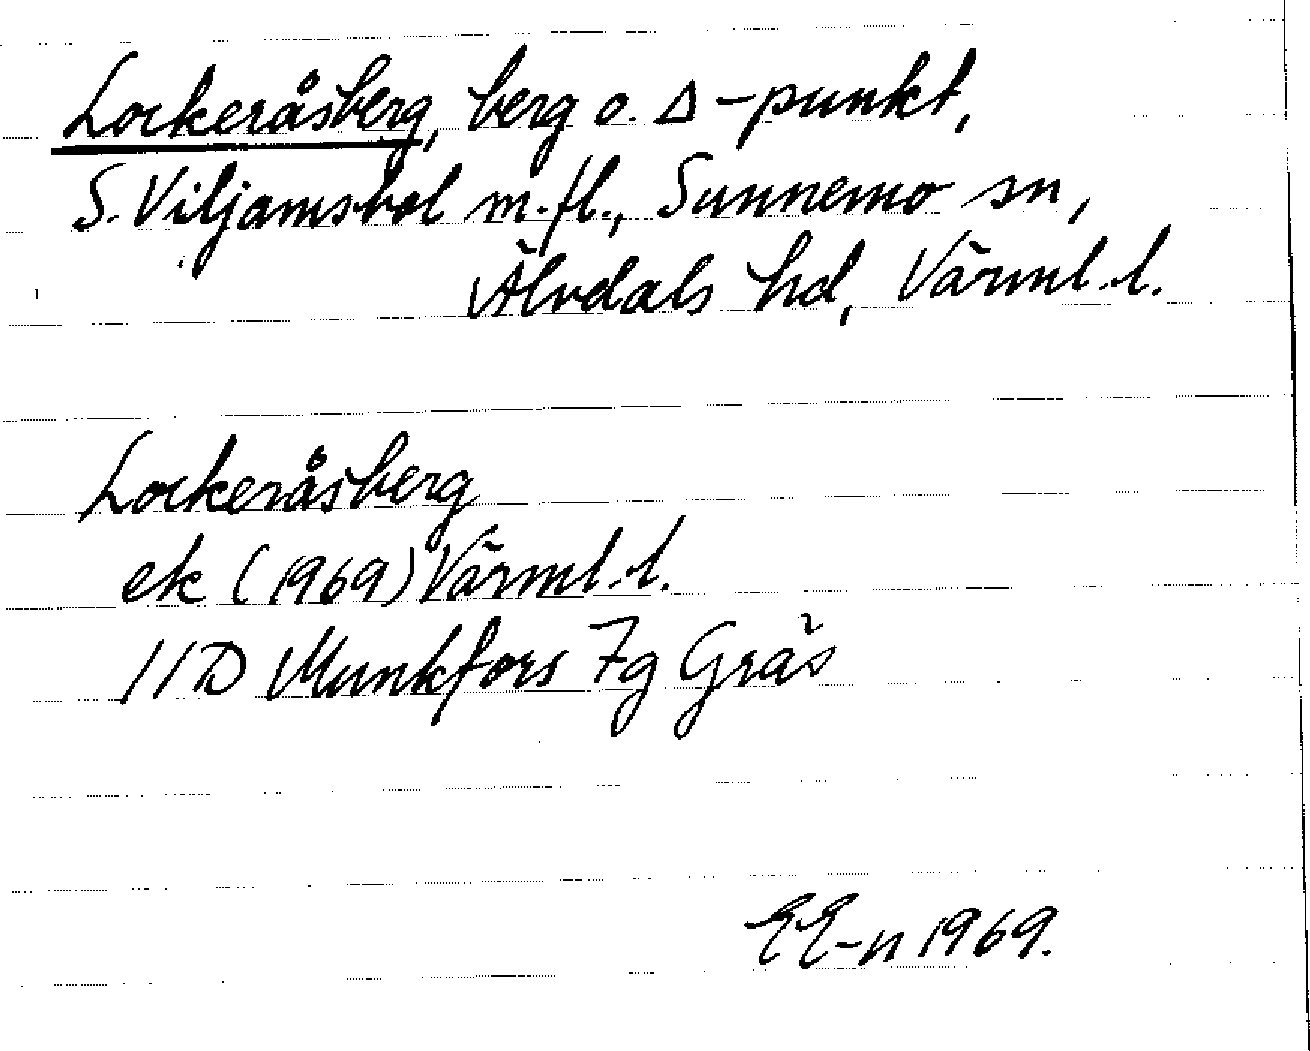 Lockeråsberg, berg o. Δ-punkt,
S. Viljamsbol m.fl., Sunnemo sn,
Älvdals hd, Värml. l.
Lockeråsberg
ek (1969) Värml. l.
11D Munkfors 7g Gräs
EE-n 1969.